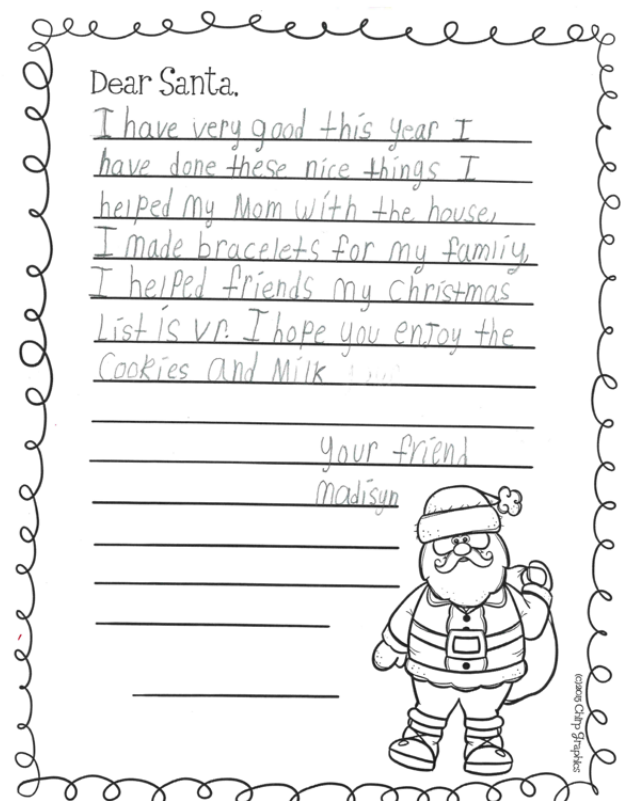 Dear Santa,
I have very good this year I
have done these nice things I
helped my Mom with the house,
I made bracelets for my famliy,
I helped friends my christmas
List is vr. I hope you enJoy the
Cookies and Milk
your friend
madisyn
Chirp Graphics